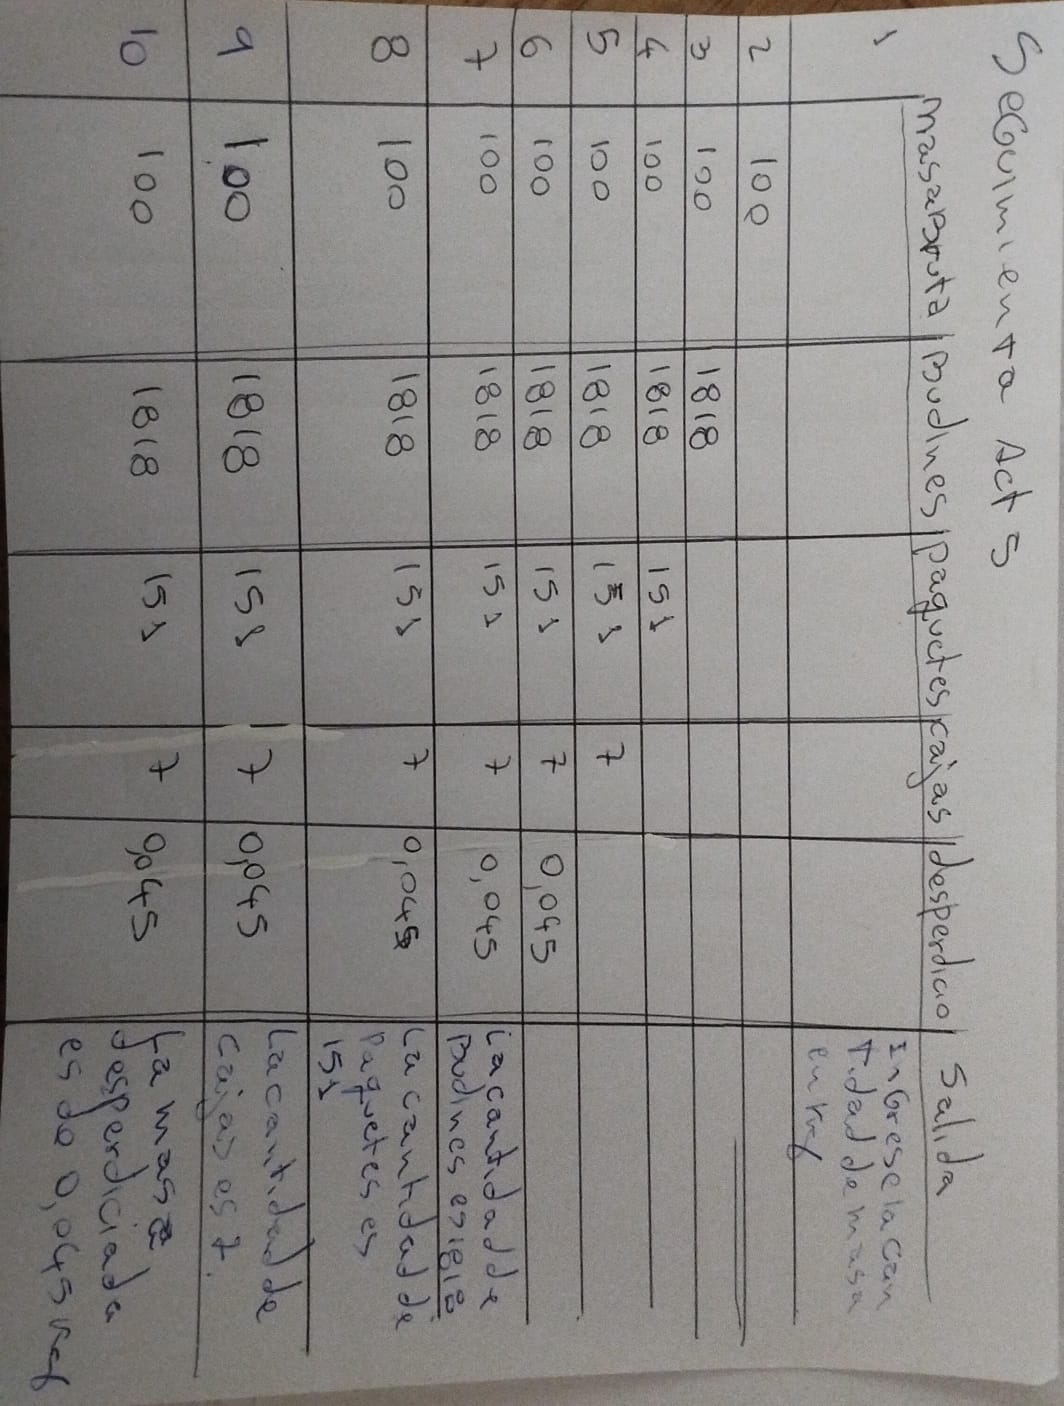 Seguimiento Act 5
masaBruta | Budines | paquetes | cajas | desperdicio | Salida
1 Ingrese la can
tidad de masa
en kg
2 100
3 100 1818
4 100 1818 151
5 100 1818 151 7
6 100 1818 151 7 0,045
7 100 1818 151 7 0,045 La cantidad de
Budines es 1818
8 100 1818 151 7 0,045 La cantidad de
Paquetes es
151
9 100 1818 151 7 0,045 La cantidad de
cajas es 7.
10 100 1818 151 7 0,045 La masa
desperdiciada
es de 0,045 kg